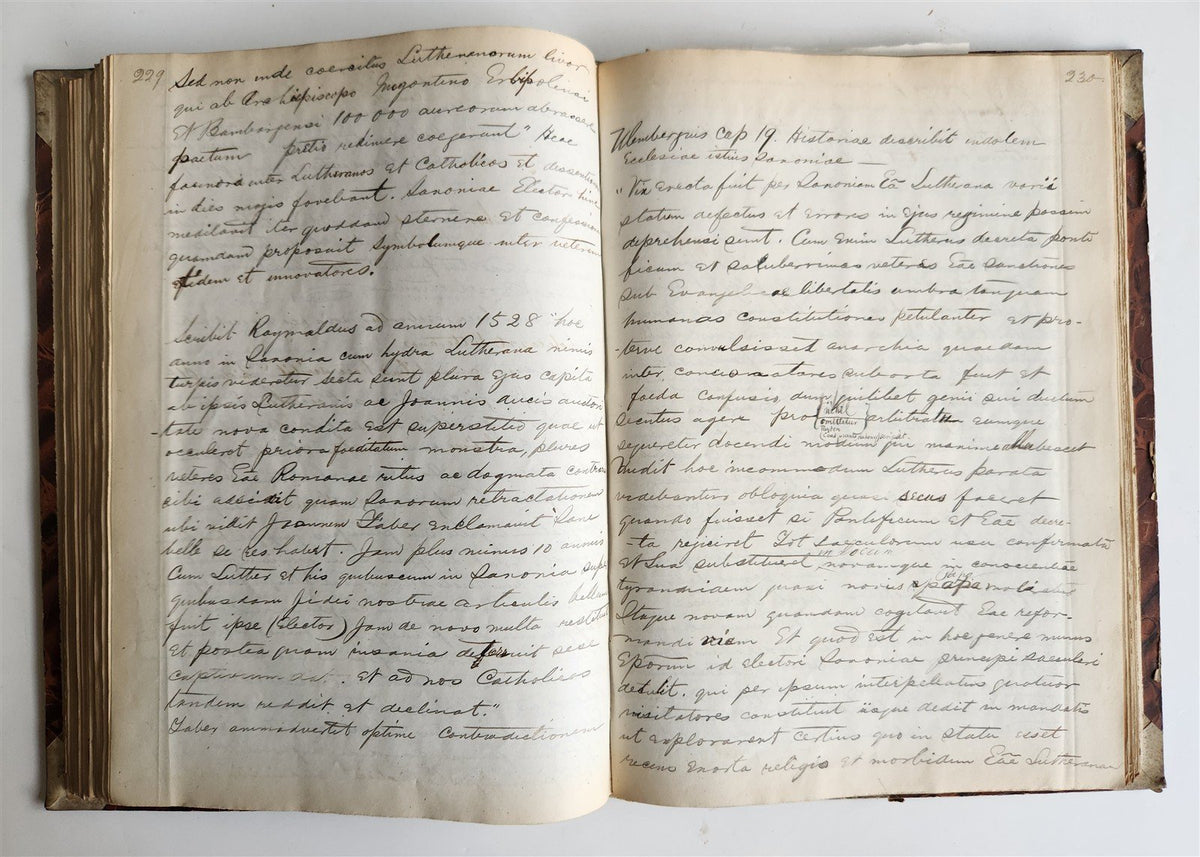 229
Sed non inde coercitus Lutheranorum livor
qui ab Archiepiscopo Mogontino Erbipolensi
Et Bambergensi 100 000 aureorum
pactum pretio redimere coegerant" Haec
facinora inter Lutheranos et Catholicos et
in dies magis fovebant. Saxoniae Elector hinc
meditavit iter quoddam sternere et
quamdam proposuit symbolumque inter veterem
fidem et innovatores.
Scribit Raynaldus ad annum 1528 "hoc
anno in Saxonia cum hydra Lutherana nimis
turpis videretur tecta sunt plura ejus capita
ab ipsis Lutheranis ac Joannis ducis auctori
tate nova condita est superstitio quae ut
occuleret priora foeditatum monstra, plures
veteres Eae Romanae ritus ac dogmata
sibi adscivit quam Saxonum retractationem
ubi vidit Joannem Faber exclamavit "Sane
belle se res habet. Jam plus minus 10 annis
Cum Luther et his quibuscum in Saxonia
quibusdam fidei nostrae articulis bellum
fuit ipse (Elector) Jam de novo multa
Et postea quam sese
captivum . et ad nos Catholicos
tandem reddit et declinat."
Faber animadvertit optime contradictionem
230
Ulembergius Cap 19. Historiae describit indolem
Ecclesiae istius Saxoniae —
"Vix erecta fuit per Saxoniam Ea Lutherana varii
statim defectus et errores in ejus regimine passim
deprehensi sunt. Cum enim Lutherus decreta ponti
ficum et saluberrimas veteres Eae sanctiones
sub Evangelicae libertatis umbra tanquam
humanas constitutiones petulanter et pro-
terve convulsisset anarchia quaedam
inter concionatores suborta fuit et
foeda confusio, dum quilibet genii sui ductum
secutus agere pro arbitratu eumque
nihil
omittitur
sequeretur docendi modum qui maxime
Vidit hoc incommodum Lutherus parata
videbantur obloquia quasi secus faceret
quando fuisset si Pontificum et Eae decre-
ta rejiceret Tot saeculorum usu confirmata
in locum
et sua substitueret novamque in conscientias
tyrannidem quasi novus papa
Itaque novam quandam cogitavit Eae refor-
mandi viam Et quod est in hoc genere munus
Eporum id electori Saxoniae principi saeculari
detulit. qui per ipsum interpellatus quatuor
visitatores constituit iisque dedit in mandatis
ut explorarent certius quo in statu esset
recens exorta religio et morbidum Eae Lutheranae